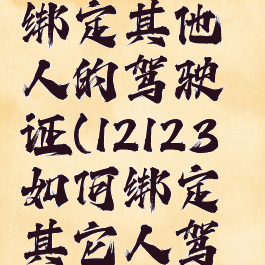 绑定其他
人的驾驶
证(12123
如何绑定
其它人驾